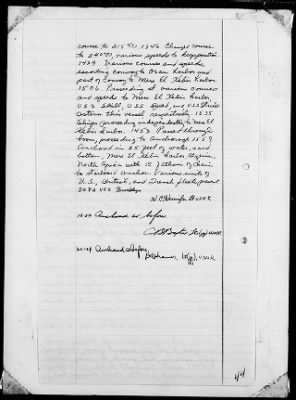 course to 215°T. 1346 Changed course
to 240°T, various speeds to keep position
1429 Various courses and speeds,
escorting convoy to Oran Harbor and
part of convoy to Mers El Kebir Harbor
1506 Proceeding at various courses
and speeds to Mers El Kebir Harbor
USS Skill, USS Speed, and USS
astern this vessel respectively. 1535
Ships proceeding independently to Mers El
Kebir Harbor. 1453 Passed through
boom, proceeding to anchorage 1529
Anchored in 85 feet of water, mud
bottom, Mers El Kebir Harbor, Algeria,
North Africa with 15 fathoms of chain
to starboard anchor. Various units of
U.S., British, and French fleets present
SOPA USS Brooklyn
USNR
Anchored as before
Lt(jg) USNR
20-24 Anchored as before,
Lt(jg), USNR
44